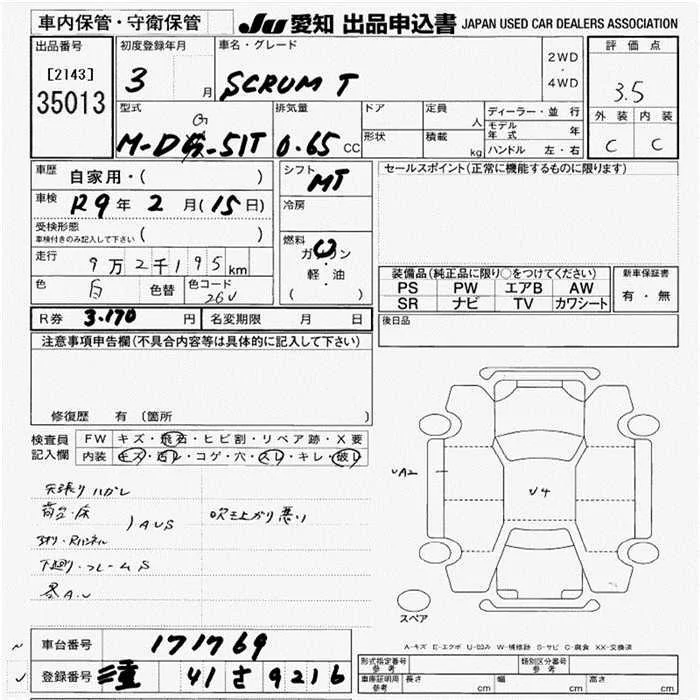 車内保管・守衛保管
JU 愛知 出品申込書 JAPAN USED CAR DEALERS ASSOCIATION
出品番号
[2143]
35013
初度登録年月
3 月
車名・グレード
SCRUM T
2WD
・
4WD
評価点
3.5
外装 内装
C C
型式
M-D -51T
排気量
0.65 CC
ドア
形状
定員 人
積載 kg
ディーラー・並行
モデル年式 年
ハンドル 左・右
車歴 自家用・( )
車検 R9年 2月(15日)
受検形態
車検付きのみ記入して下さい ( )
走行 9万2千195km
色 白 色替 色コード 26U
シフト MT
冷房
燃料
ガソリン
・
軽・油
( )
セールスポイント(正常に機能するものに限ります)
装備品(純正品に限り○をつけてください)
PS PW エアB AW
SR ナビ TV カワシート
新車保証書
有・無
後日品
R券 3.170 円 名変期限 月 日
注意事項申告欄(不具合内容等は具体的に記入して下さい)
修復歴 有 (箇所
検査員記入欄
FW キズ・飛石・ヒビ割・リペア跡・X要
内装 キズ・汚レ・コゲ・穴・スレ・キレ・破レ
天張りハガレ
荷台・床
AUS
吹き上がり悪い
下廻り・フレームS
UA2
U4
スペア
A-キズ E-エクボ U-凹み W-補修跡 S-サビ C-腐食 XX-交換済
車台番号 171769
登録番号 三重 41 さ 9216
形式指定番号
参考
類別区分番号
参考
車庫証明用
参考
長さ cm
幅 cm
高さ cm